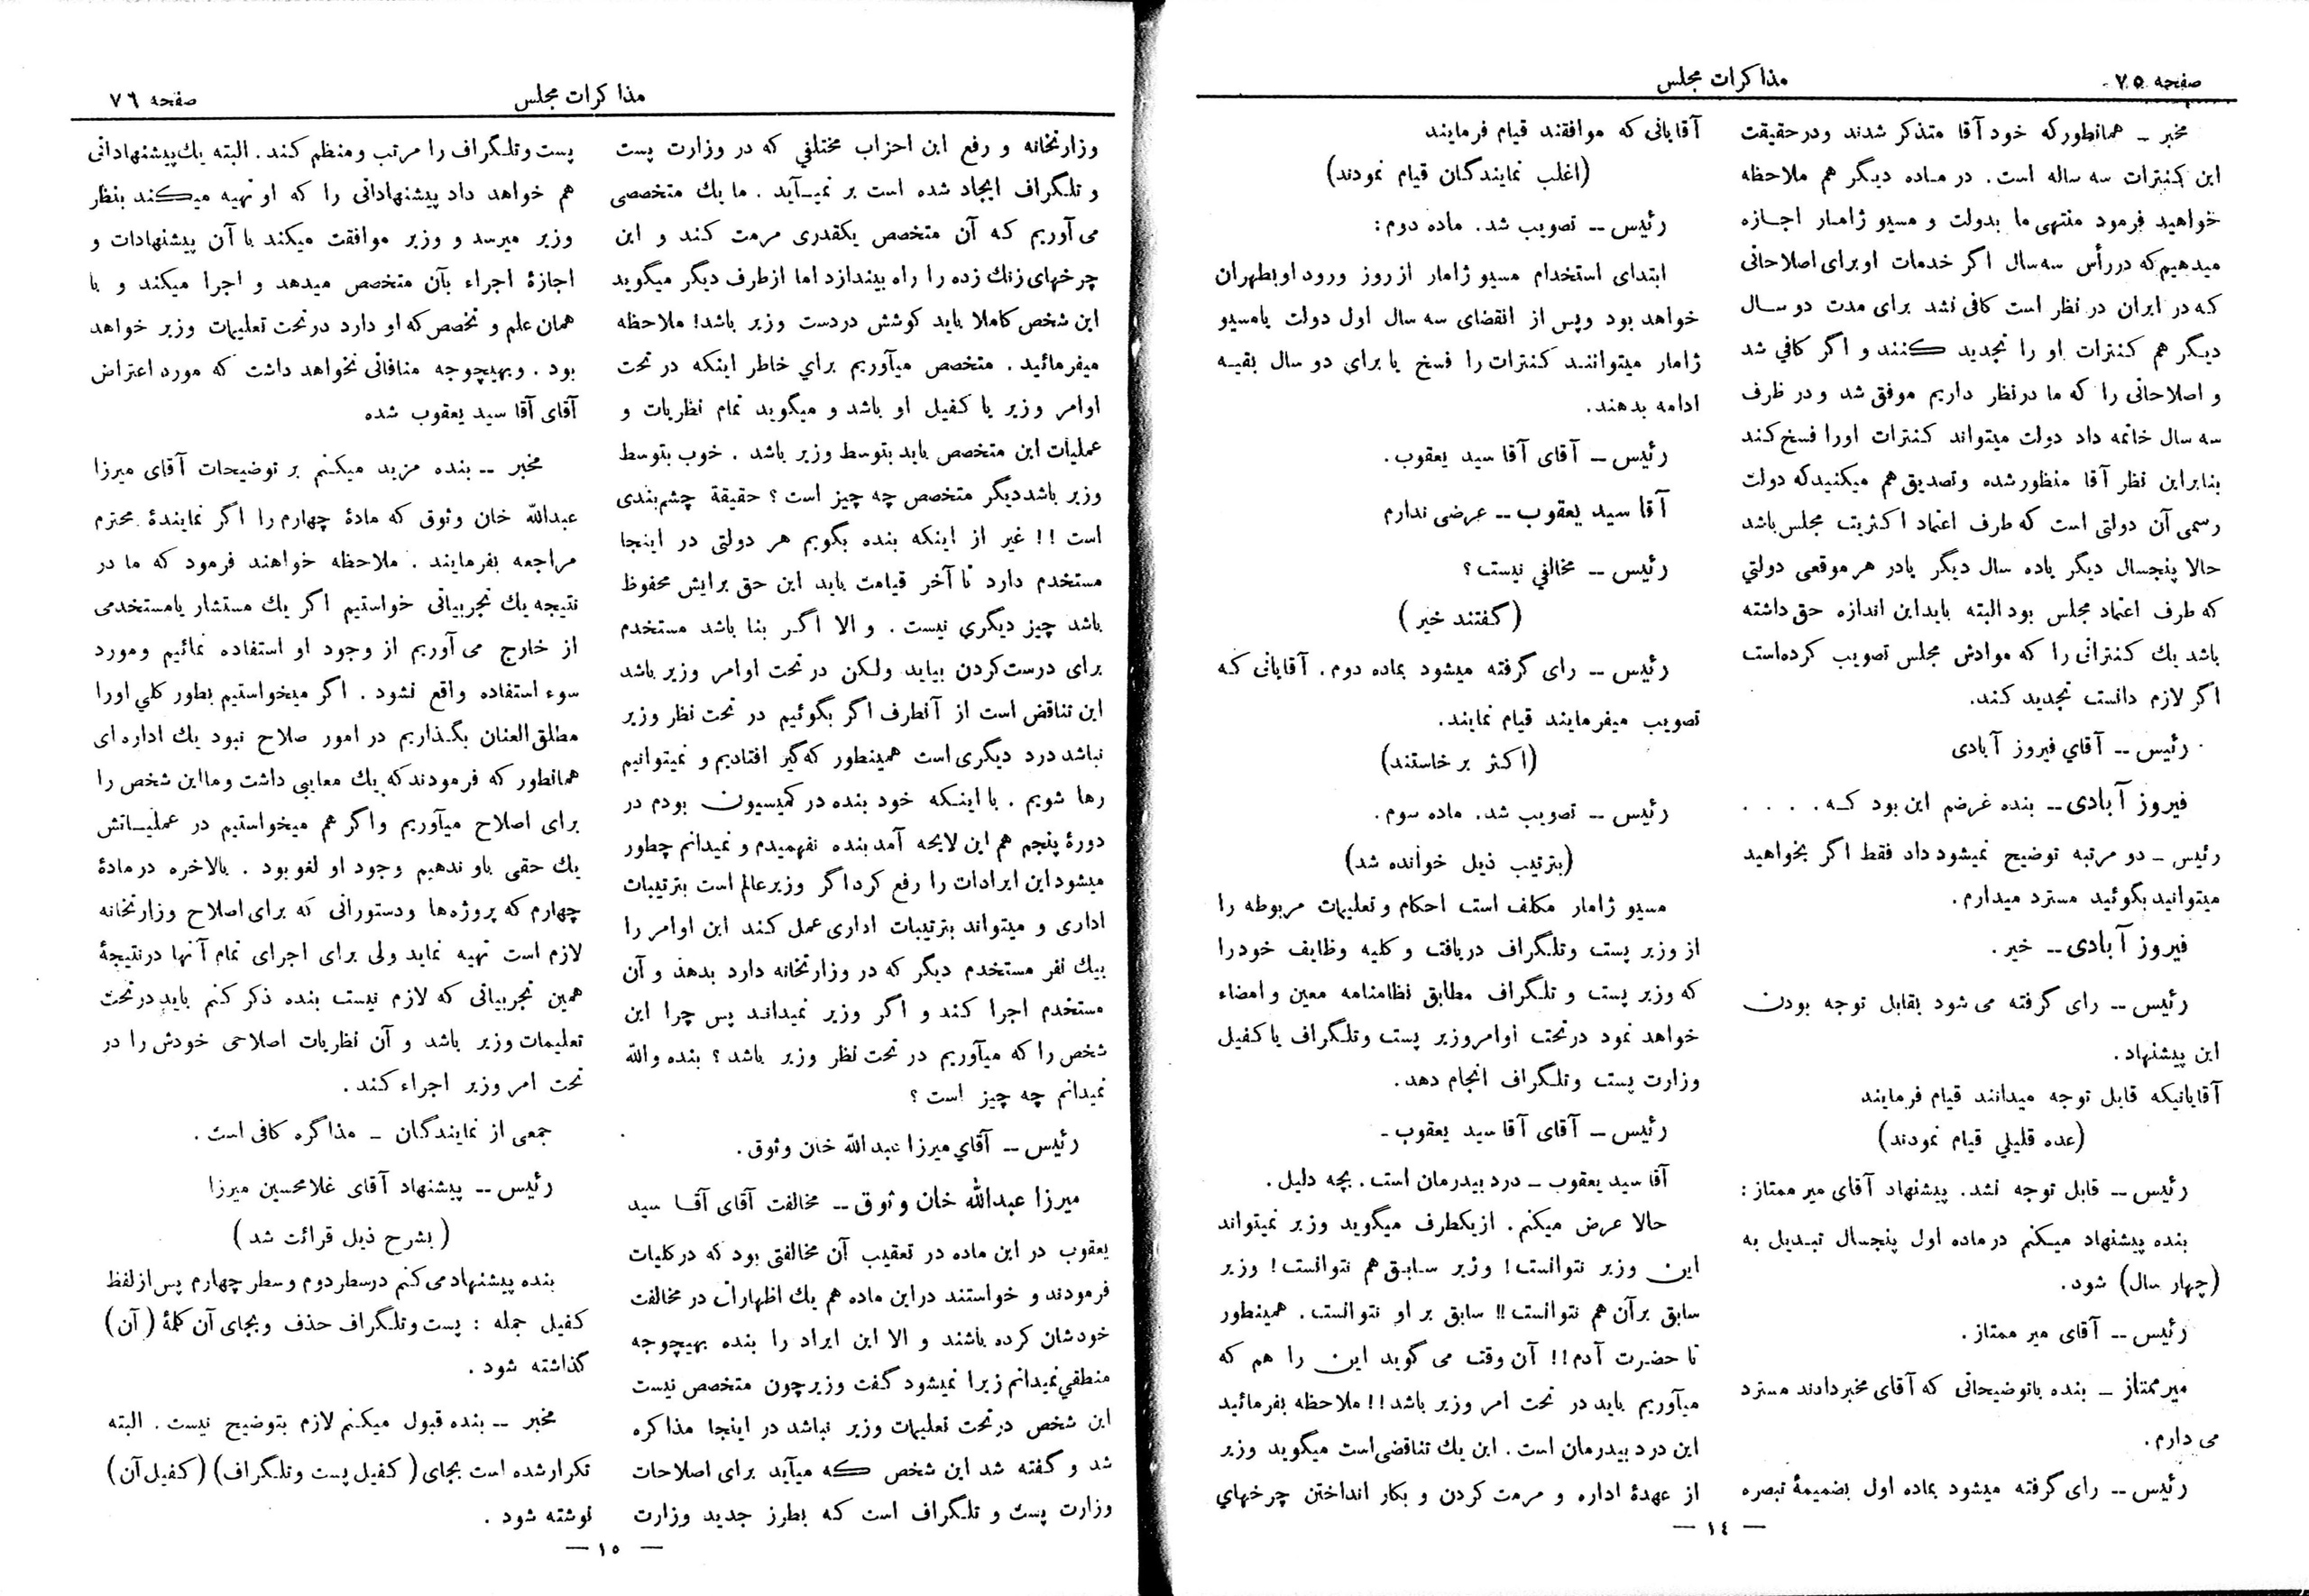 صفحه ۷۵
مذاکرات مجلس
مخبر ــ همانطور که خود آقا متذکر شدند و در حقیقت
این کنترات سه ساله است. در ماده دیگر هم ملاحظه
خواهید فرمود منتهی ما بدولت و مسیو ژامار اجازه
میدهیم که در رأس سه سال اگر خدمات او برای اصلاحاتی
که در ایران در نظر است کافی نشد برای مدت دو سال
دیگر هم کنترات او را تجدید کنند و اگر کافي شد
و اصلاحاتی را که ما در نظر داریم موفق شد و در ظرف
سه سال خاتمه داد دولت میتواند کنترات اورا فسخ کند
بنابراین نظر آقا منظور شده وتصدیق هم میکنید که دولت
رسمی آن دولتی است که طرف اعتماد اکثریت مجلس باشد
حالا پنجسال دیگر یاده سال دیگر یادر هر موقعی دولتي
که طرف اعتماد مجلس بود البته باید این اندازه حق داشته
باشد یك کنتراتی را که موادش مجلس تصویب کرده‌است
اگر لازم دانست تجدید کند.
رئیس ــ آقاي فیروز آبادی
فیروز آبادی ــ بنده غرضم این بود که . . . .
رئیس ــ دو مرتبه توضیح نمیشود داد فقط اگر بخواهید
میتوانید بگوئید مسترد میدارم.
فیروز آبادی ــ خیر.
رئیس ــ رای گرفته می شود بقابل توجه بودن
این پیشنهاد.
آقایانیکه قابل توجه میدانند قیام فرمایند
(عده قلیلي قیام نمودند)
رئیس ــ قابل توجه نشد. پیشنهاد آقای میر ممتاز:
بنده پیشنهاد میکنم در ماده اول پنجسال تبدیل به
(چهار سال) شود.
رئیس ــ آقای میر ممتاز.
میر ممتاز ــ بنده باتوضیحاتی که آقای مخبر دادند مسترد
می دارم.
رئیس ــ رای گرفته میشود بماده اول بضمیمهٔ تبصره
آقایانی که موافقند قیام فرمایند
(اغلب نمایندگان قیام نمودند)
رئیس ــ تصویب شد. ماده دوم:
ابتدای استخدام مسیو ژامار از روز ورود او بطهران
خواهد بود وپس از انقضای سه سال اول دولت یامسیو
ژامار میتوانند کنترات را فسخ یا برای دو سال بقیه
ادامه بدهند.
رئیس ــ آقای آقا سید یعقوب.
آقا سید یعقوب ــ عرضی ندارم
رئیس ــ مخالفي نیست؟
(گفتند خیر)
رئیس ــ رای گرفته میشود بماده دوم. آقایانی که
تصویب میفرمایند قیام نمایند.
(اکثر برخاستند)
رئیس ــ تصویب شد. ماده سوم.
(بترتیب ذیل خوانده شد)
مسیو ژامار مکلف است احکام وتعلیمات مربوطه را
از وزیر پست وتلگراف دریافت وکلیه وظایف خودرا
که وزیر پست و تلگراف مطابق نظامنامه معین وامضاء
خواهد نمود در تحت اوامر وزیر پست وتلگراف یا کفیل
وزارت پست وتلگراف انجام دهد.
رئیس ــ آقای آقا سید یعقوب ــ
آقا سید یعقوب ــ درد بیدرمان است. بچه دلیل.
حالا عرض میکنم. از یکطرف میگوید وزیر نمیتواند
این وزیر نتوانست! وزیر سابق هم نتوانست! وزیر
سابق برآن هم نتوانست!! سابق بر او نتوانست. همینطور
تا حضرت آدم!! آن وقت می گوید این را هم که
میآوریم باید در تحت امر وزیر باشد!! ملاحظه بفرمائید
این درد بیدرمان است. این یك تناقضی است میگوید وزیر
از عهدهٔ اداره و مرمت کردن و بکار انداختن چرخهاي
— ١٤ —
مذاکرات مجلس
صفحه ۷٦
وزارتخانه و رفع این احزاب مختلفي که در وزارت پست
و تلگراف ایجاد شده است بر نمیآید. ما یك متخصصی
می آوریم که آن متخصص یکقدری مرمت کند و این
چرخهای زنك زده را راه بیندازد اما ازطرف دیگر میگوید
این شخص کاملا باید کوشش دردست وزیر باشد! ملاحظه
میفرمائید. متخصص میآوریم براي خاطر اینکه در تحت
اوامر وزیر یا کفیل او باشد و میگوید تمام نظریات و
عملیات این متخصص باید بتوسط وزیر باشد. خوب بتوسط
وزیر باشددیگر متخصص چه چیز است؟ حقیقة چشم بندی
است!! غیر از اینکه بنده بگویم هر دولتی در اینجا
مستخدم دارد تا آخر قیامت باید این حق برایش محفوظ
باشد چیز دیگري نیست. و الا اگر بنا باشد مستخدم
برای درست کردن بیاید ولکن در تحت اوامر وزیر باشد
این تناقض است از آنطرف اگر بگوئیم در تحت نظر وزیر
نباشد درد دیگری است همینطور که گیر افتادیم و نمیتوانیم
رها شویم. با اینکه خود بنده در کمیسیون بودم در
دورهٔ پنجم هم این لایحه آمد بنده نفهمیدم و نمیدانم چطور
میشود این ایرادات را رفع کرد اگر وزیر عالم است بترتیبات
اداری و میتواند بترتیبات اداری عمل کند این اوامر را
بیك نفر مستخدم دیگر که در وزارتخانه دارد بدهد و آن
مستخدم اجرا کند و اگر وزیر نمیداند پس چرا این
شخص را که میآوریم در تحت نظر وزیر باشد؟ بنده والله
نمیدانم چه چیز است؟
رئیس ــ آقاي میرزا عبدالله خان وثوق.
میرزا عبدالله خان وثوق ــ مخالفت آقای آقا سید
یعقوب در این ماده در تعقیب آن مخالفتی بود که در کلیات
فرمودند و خواستند در این ماده هم یك اظهاراتی در مخالفت
خودشان کرده باشند و الا این ایراد را بنده بهیچوجه
منطقي نمیدانم زیرا نمیشود گفت وزیر چون متخصص نیست
این شخص در تحت تعلیمات وزیر نباشد در اینجا مذاکره
شد و گفته شد این شخص که میآید برای اصلاحات
وزارت پست و تلگراف است که بطرز جدید وزارت
پست وتلگراف را مرتب ومنظم کند. البته یك پیشنهاداتی
هم خواهد داد پیشنهاداتی را که او تهیه میکند بنظر
وزیر میرسد و وزیر موافقت میکند با آن پیشنهادات و
اجازهٔ اجراء بآن متخصص میدهد و اجرا میکند و با
همان علم و تخصص که او دارد در تحت تعلیمات وزیر خواهد
بود. وبهیچوجه منافاتی نخواهد داشت که مورد اعتراض
آقای آقا سید یعقوب شده
مخبر ــ بنده مزید میکنم بر توضیحات آقای میرزا
عبدالله خان وثوق که مادهٔ چهارم را اگر نمایندهٔ محترم
مراجعه بفرمایند. ملاحظه خواهند فرمود که ما در
نتیجه یك تجربیاتی خواستیم اگر یك مستشار یامستخدمی
از خارج می آوریم از وجود او استفاده نمائیم ومورد
سوء استفاده واقع نشود. اگر میخواستیم بطور کلي اورا
مطلق العنان بگذاریم در امور صلاح نبود یك اداره ای
همانطور که فرمودند که یك معایبی داشت وما این شخص را
برای اصلاح میآوریم واگر هم میخواستیم در عملیاتش
یك حقی باو ندهیم وجود او لغو بود. بالاخره در مادهٔ
چهارم که پروژه‌ها ودستوراتی که برای اصلاح وزارتخانه
لازم است تهیه نماید ولی برای اجرای تمام آنها درنتیجهٔ
همین تجربیاتی که لازم نیست بنده ذکر کنم باید در تحت
تعلیمات وزیر باشد و آن نظریات اصلاحی خودش را در
تحت امر وزیر اجراء کند.
جمعی از نمایندگان ــ مذاکره کافی است.
رئیس ــ پیشنهاد آقای غلامحسین میرزا
(بشرح ذیل قرائت شد)
بنده پیشنهاد می کنم درسطر دوم و سطر چهارم پس از لفظ
کفیل جمله: پست وتلگراف حذف وبجای آن کلمهٔ (آن)
گذاشته شود.
مخبر ــ بنده قبول میکنم لازم بتوضیح نیست. البته
تکرار شده است بجای (کفیل پست وتلگراف) (کفیل آن)
نوشته شود.
— ١٥ —